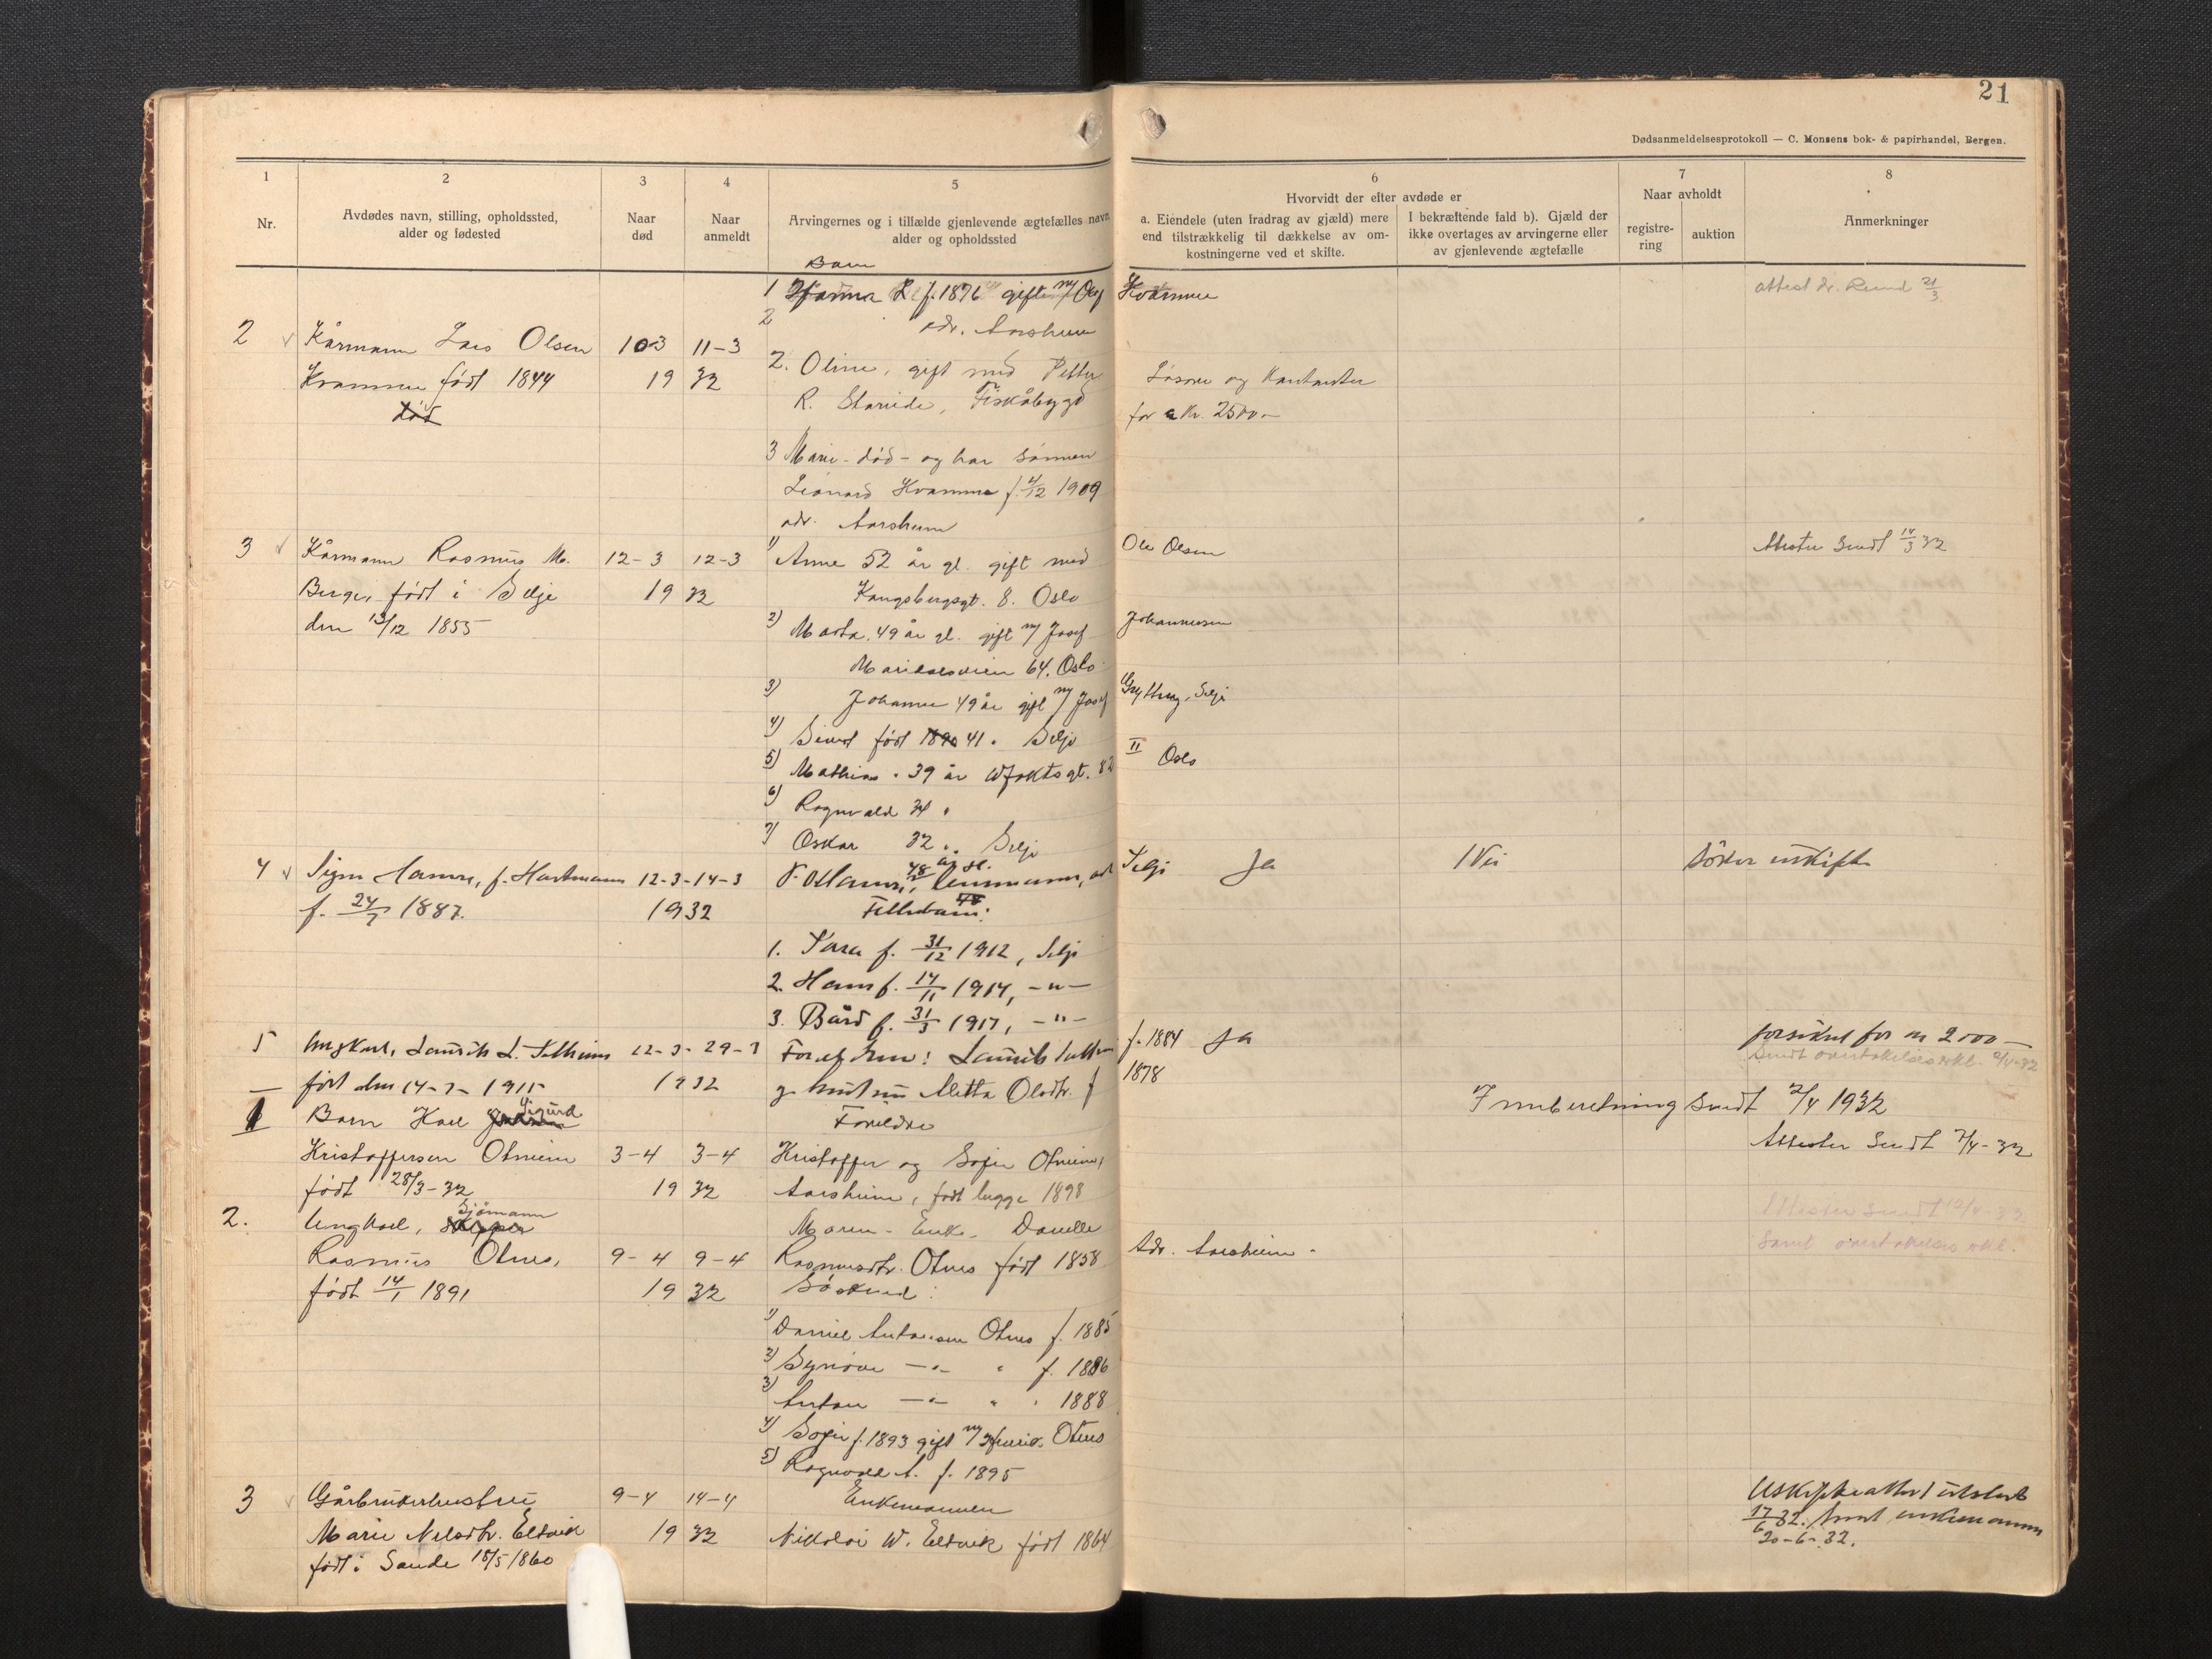 21
Dødsanmeldelsesprotokoll — C. Monsens bok- & papirhandel, Bergen.
1 2 3 4 5
Nr.
Avdødes navn, stilling, opholdssted,
alder og fødested
Naar
død
Naar
anmeldt
Arvingernes og i tilfælde gjenlevende ægtefælles navn
alder og opholdssted
6
Hvorvidt der efter avdøde er
a. Eiendele (uten fradrag av gjæld) mere
end tilstrækkelig til dækkelse av om-
kostningerne ved et skifte.
I bekræftende fald b). Gjæld der
ikke overtages av arvingerne eller
av gjenlevende ægtefælle
7
Naar avholdt
registre-
ring
auktion
8
Anmerkninger
Barn
1 Hanna L f. 1876 gift m/ Ole Kvamme
attest 21/3
2
adr. Aarsheim
2 Kårmann Lars Olsen 10-3 11-3
2. Oline, gift med Petter
Kvamme født 1844 19 32
Løsøre og Kontanter
død
R. Starvide, Fiskåbygd
for Kr. 2500.-
3 Marie - død - og har sønnen
Leonard Kvamme f. 4/12 1909
adr. Aarsheim
3 Kårmann Rasmus M. 12-3 12-3
1) Anne 52 år gl. gift med Ole Olsen
Attester Sendt 14/3 32
Berge, født i Selje 19 32
Kongsbergsgt. 8. Oslo
den 13/12 1855
2) Marta, 49 år gl. gift m/ Josef Johannessen
Maridalsveien 64. Oslo
3) Johanne 49 år gift m/ Josef Grytting, Selje
4) Sivert født 1890 41 " Selje
5) Mathias " 39 år Wfoktsgt. 82 II Oslo
6) Ragnvald 34 "
7) Oskar 32 " " Selje
4 Signe Hamre, f. Hartmann 12-3-14-3
48 år gl. Selje Ja Nei Söker uskifte
f. 24/7 1887. 1932
Fellesbarn:
1. Kara f. 31/12 1912, Selje
2. Hans f. 14/11 1914, -"-
3. Bård f. 31/3 1917, -"-
5 Ungkarl, Laurits L. 22-3-29-3
Foreldrene: Laurits f. 1884 Ja
forsikret for kr 2000-
Sendt overtakelseserkl. 2/4-32
født den 14-3-1915 1932
g. hustru Metta Olsdtr. f 1878
1 Barn Karl Sigurd
Foreldre
Innberetning Sendt 2/4 1932
Kristoffersen Otneim 3-4 3-4
Kristoffer og Sofie Otneim,
Attester Sendt 7/4-32
født 28/3-32 19 32
Aarsheim, født begge 1898
2. Ungkarl, Skipper Sjømann
Moren - Enke - Danelle
Attester Sendt 12/4-32
Rasmus Otnes, 9-4 9-4
Rasmusdtr. Otnes født 1858 Adr. Aarsheim -
Samt overtakelses erkl.
født 14/1 1891 19 32
Søsken:
1) Daniel Antonsen Otnes f. 1885
2) Synøve -"- " f. 1886
3) Anton -"- " " 1888
4) Sofie f. 1893 gift m/ Otnes
5) Ragnvald A. f. 1895
3 Gårbrukerhustru 9-4 14-4
Enkemannen
Uskifteattest utstedt
Marie Nilsdtr. Eltvik 19 32
Nikolai W. Eltvik født 1864
17/6 32. Sendt enkemannen
født i Sande 18/5 1860
20-6-32.